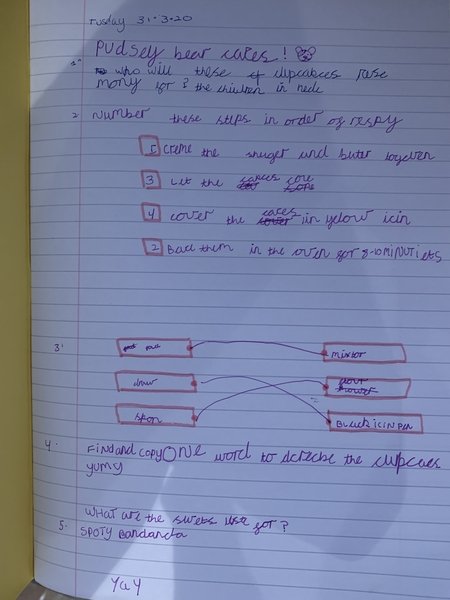 Tusday 31.3.20
Pudsey bear cakes!
1. who will these cupcakces rase
mony for ? the children in nede
2. Number these steps in order of respy
1 creme the shuger and buter togeven
3 Let the cakces core
4 cover the cakes in yelow icin
2 Back them in the oven for 8-10 minuiets
3.
mixtor
draw
spon
Black icin pen
4. Find and copy one word to descibe the cupcaes
yumy
5. What are the swets use for?
spoty Bandanda
Yay